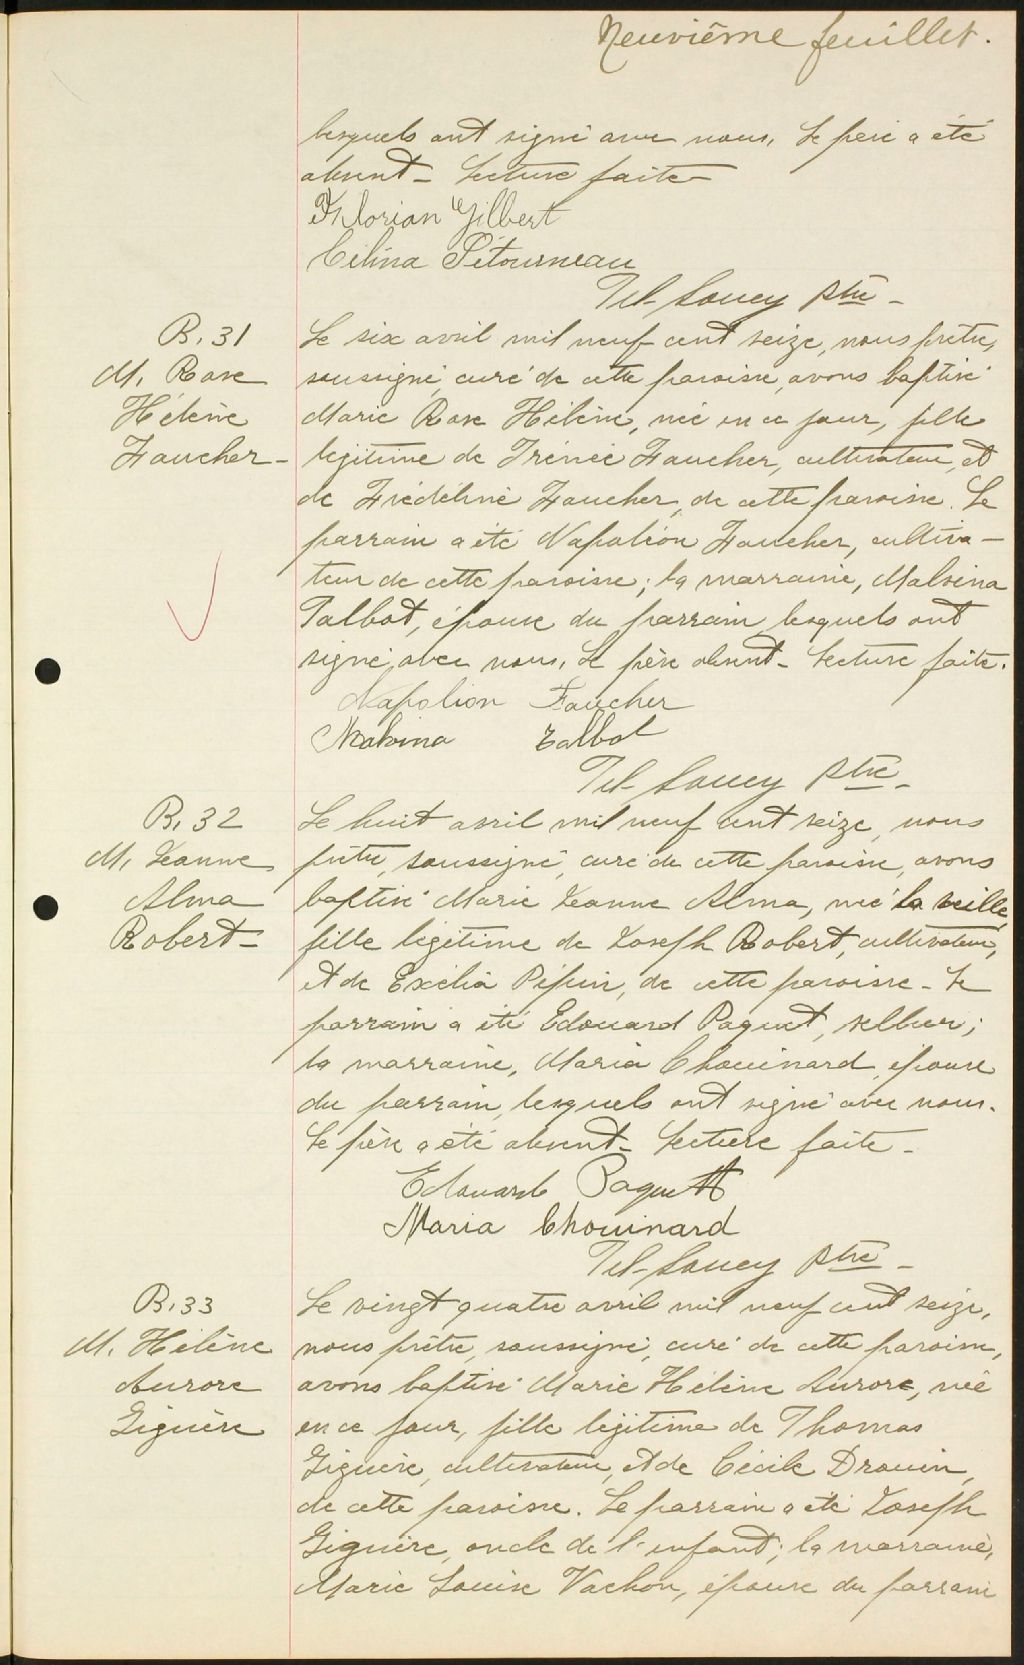 Neuvième feuillet.
lesquels ont signé avec nous. Le père a été
absent - Lecture faite
Florian Gilbert
Célina Létourneau
Tél- Soucy Ptre -
B. 31
M. Rose
Hélène
Faucher -
Le six avril mil neuf cent seize, nous prêtre,
soussigné, curé de cette paroisse, avons baptisé
Marie Rose Hélène, née en ce jour, fille
légitime de Irénée Faucher, cultivateur, et
de Frédéline Faucher, de cette paroisse. Le
parrain a été Napoléon Faucher, cultiva-
teur de cette paroisse; la marraine, Malvina
Talbot, épouse du parrain lesquels ont
signé avec nous. Le père absent - Lecture faite.
Napolion Faucher
Malvina Talbot
Tél- Soucy Ptre -
B. 32
M. Jeanne
Alma
Robert -
Le huit avril mil neuf cent seize, nous
prêtre, soussigné, curé de cette paroisse, avons
baptisé Marie Jeanne Alma, née la veille,
fille légitime de Joseph Robert, cultivateur,
et de Exélia Pépin, de cette paroisse - Le
parrain a été Edouard Paquet, sellier;
la marraine, Maria Chouinard, épouse
du parrain, lesquels ont signé avec nous.
Le père a été absent - Lecture faite -
Edouard Paquett
Maria Chouinard
Tél- Soucy Ptre -
B. 33
M. Hélène
Aurore
Giguère
Le vingt quatre avril mil neuf cent seize,
nous prêtre, soussigné, curé de cette paroisse,
avons baptisé Marie Hélène Aurore, née
en ce jour, fille légitime de Thomas
Giguère, cultivateur, et de Cécile Drouin,
de cette paroisse. Le parrain a été Joseph
Giguère, oncle de l'enfant; la marraine,
Marie Louise Vachon, épouse du parrain